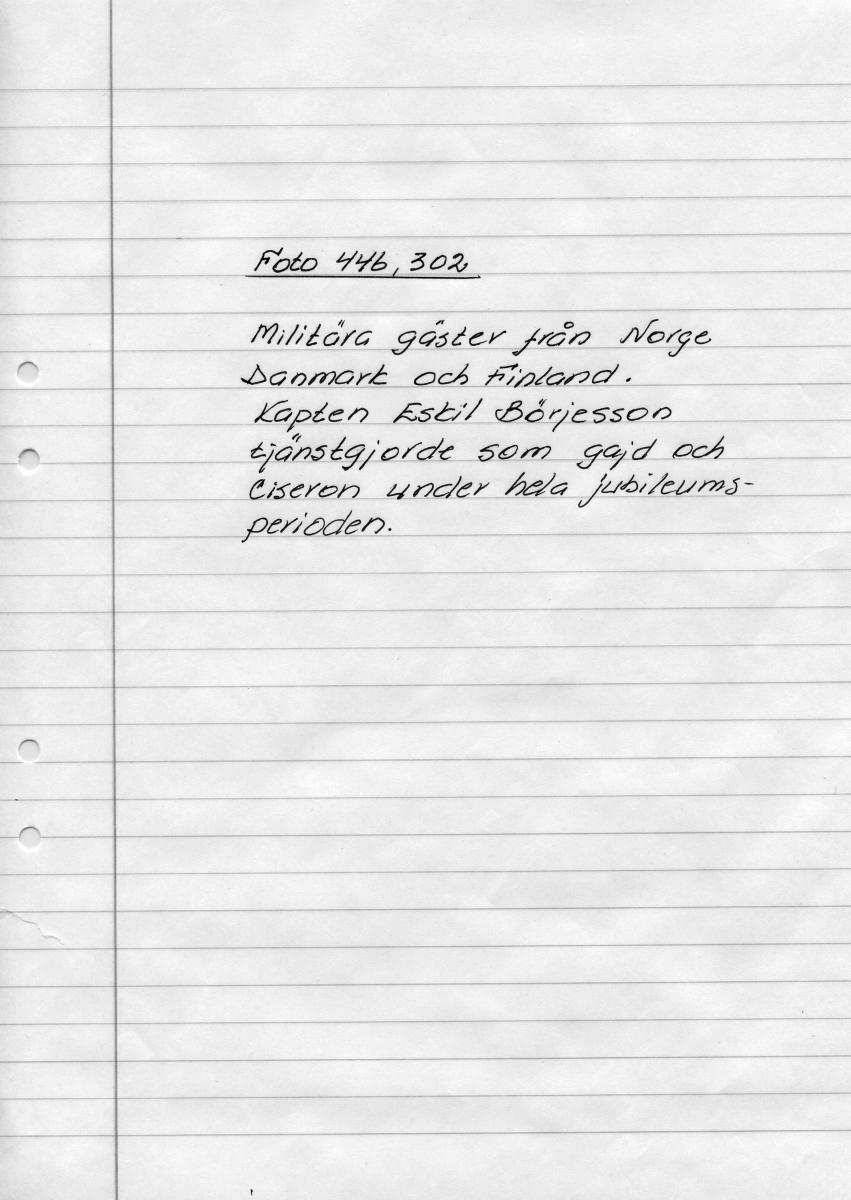 Foto 44b, 302
Militära gäster från Norge
Danmark och Finland.
Kapten Eskil Börjesson
tjänstgjorde som gajd och
Ciseron under hela jubileums-
perioden.